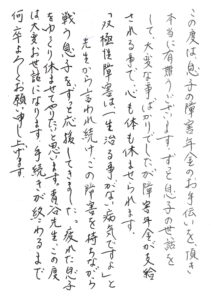 この度は息子の障害年金のお手伝いを頂き
本当に有難うございます。ずっと息子の世話を
して、大変な事ばかりでしたが障害年金が支給
される事で、心も体も休ませられます。
「双極性障害は一生治る事がない病気ですよ」と
先生から言われ続けこの障害を持ちながら
戦う息子をずっと応援してきました。疲れた息子
をゆっくり休ませてやりたいと思います。青谷先生この度
は大変お世話になります。手続きが終わるまで
何卒よろしくお願い申し上げます。